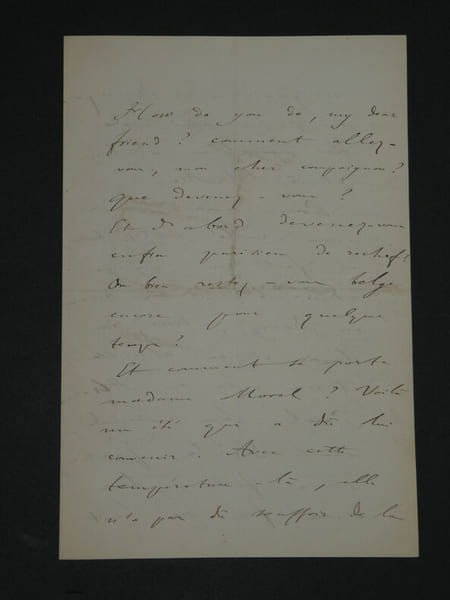 How do you do, my dear
friend ? comment allez-
vous, mon cher compagnon ?
que devenez-vous ?
Et d'abord devenez-vous
enfin parisien de rechef ?
Ou bien restez-vous belge
encore pour quelque
temps ?
Et comment se porte
madame Morel ? Voilà
un été qui a dû lui
convenir. Avec cette
température-là, elle
n'a pas dû souffrir de la